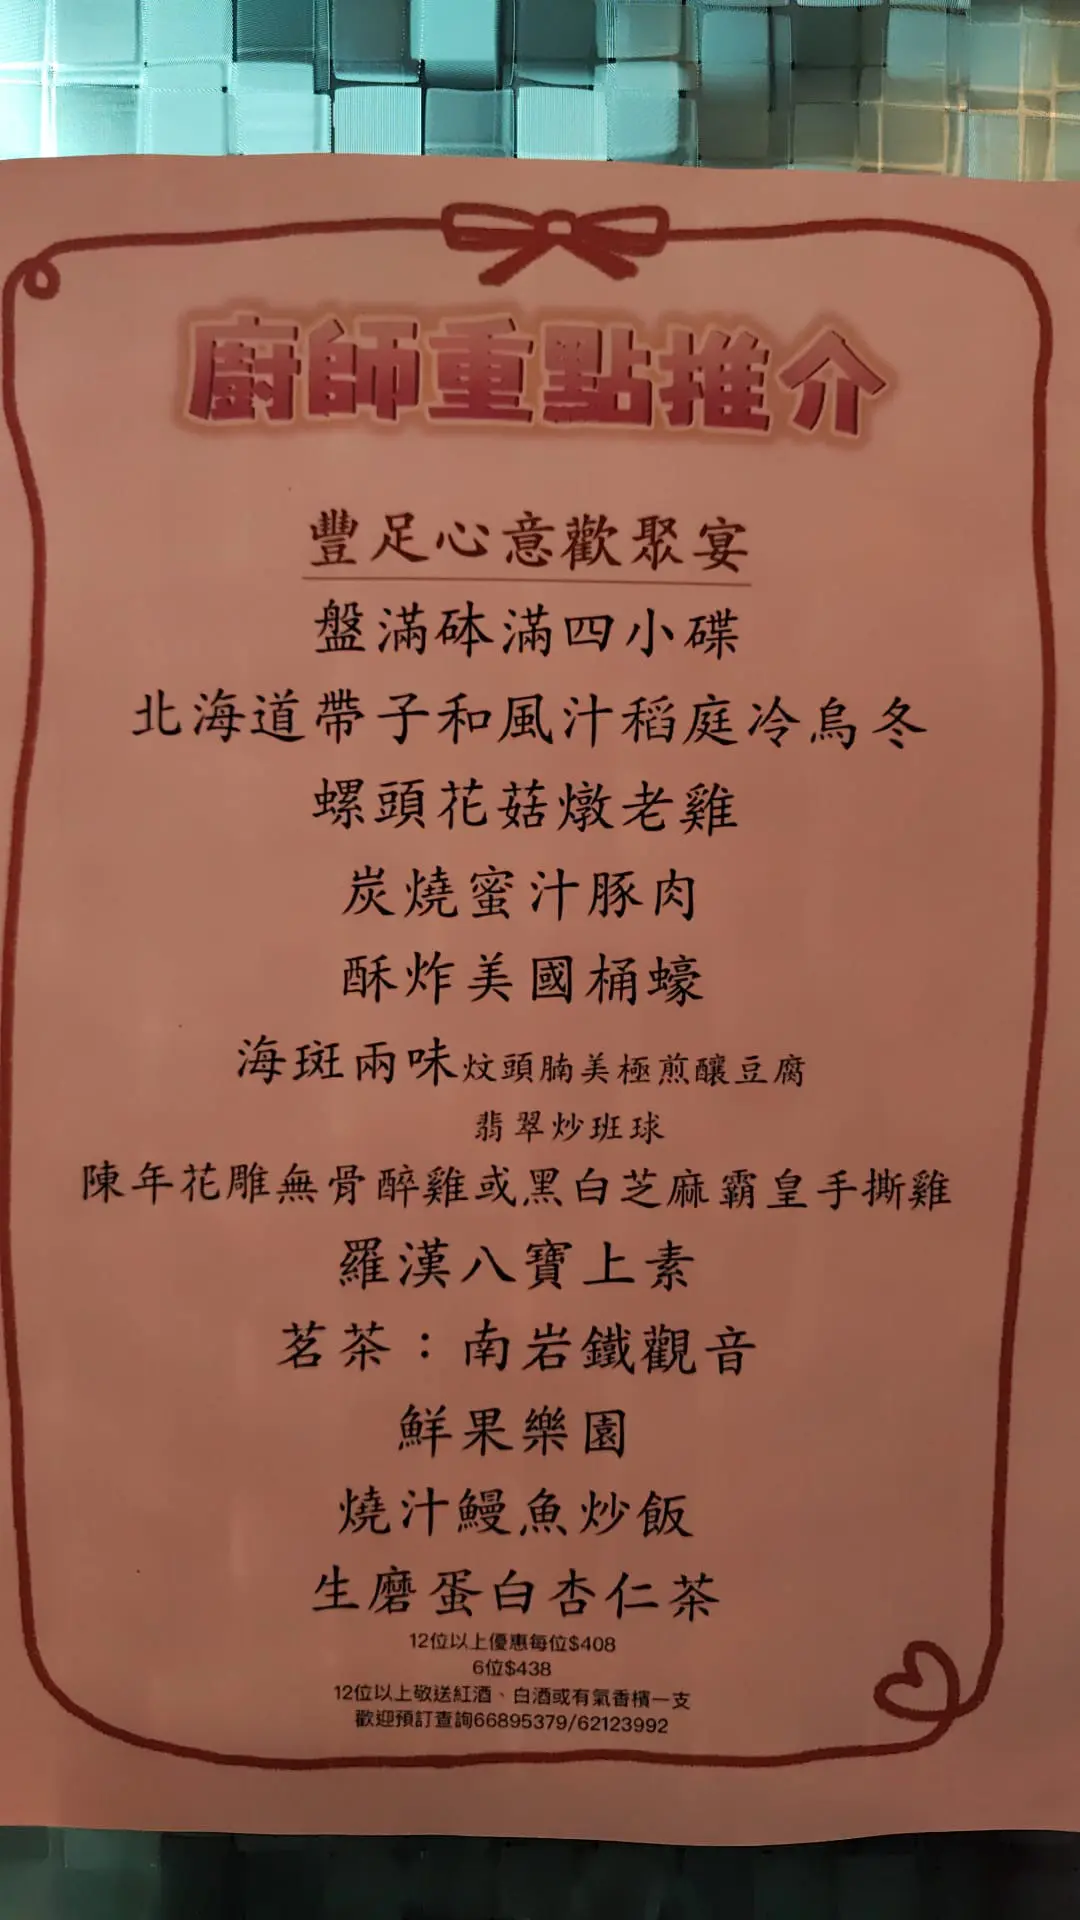 廚師重點推介
豐足心意歡聚宴
盤滿砵滿四小碟
北海道帶子和風汁稻庭冷烏冬
螺頭花菇燉老雞
炭燒蜜汁豚肉
酥炸美國桶蠔
海斑兩味炆頭腩美極煎釀豆腐
翡翠炒班球
陳年花雕無骨醉雞或黑白芝麻霸皇手撕雞
羅漢八寶上素
茗茶：南岩鐵觀音
鮮果樂園
燒汁鰻魚炒飯
生磨蛋白杏仁茶
12位以上優惠每位$408
6位$438
12位以上敬送紅酒、白酒或有氣香檳一支
歡迎預訂查詢66895379/62123992